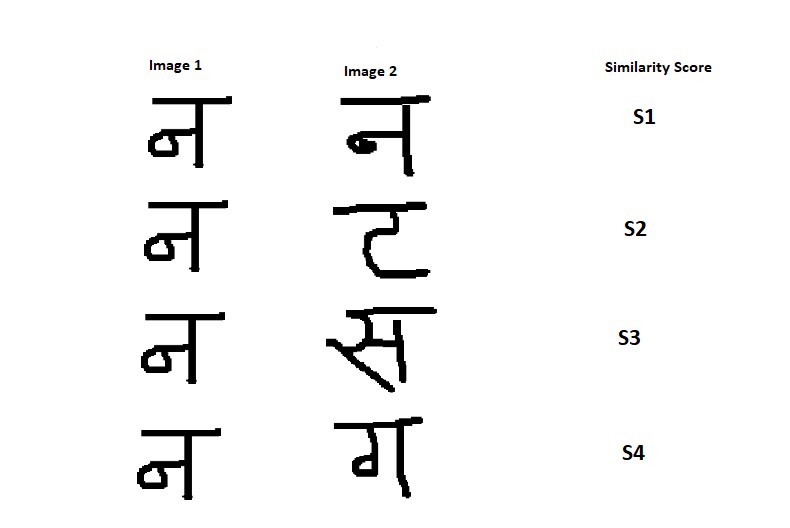 Image 1 Image 2 Similarity Score
न न S1
न ट S2
न स S3
न ग S4